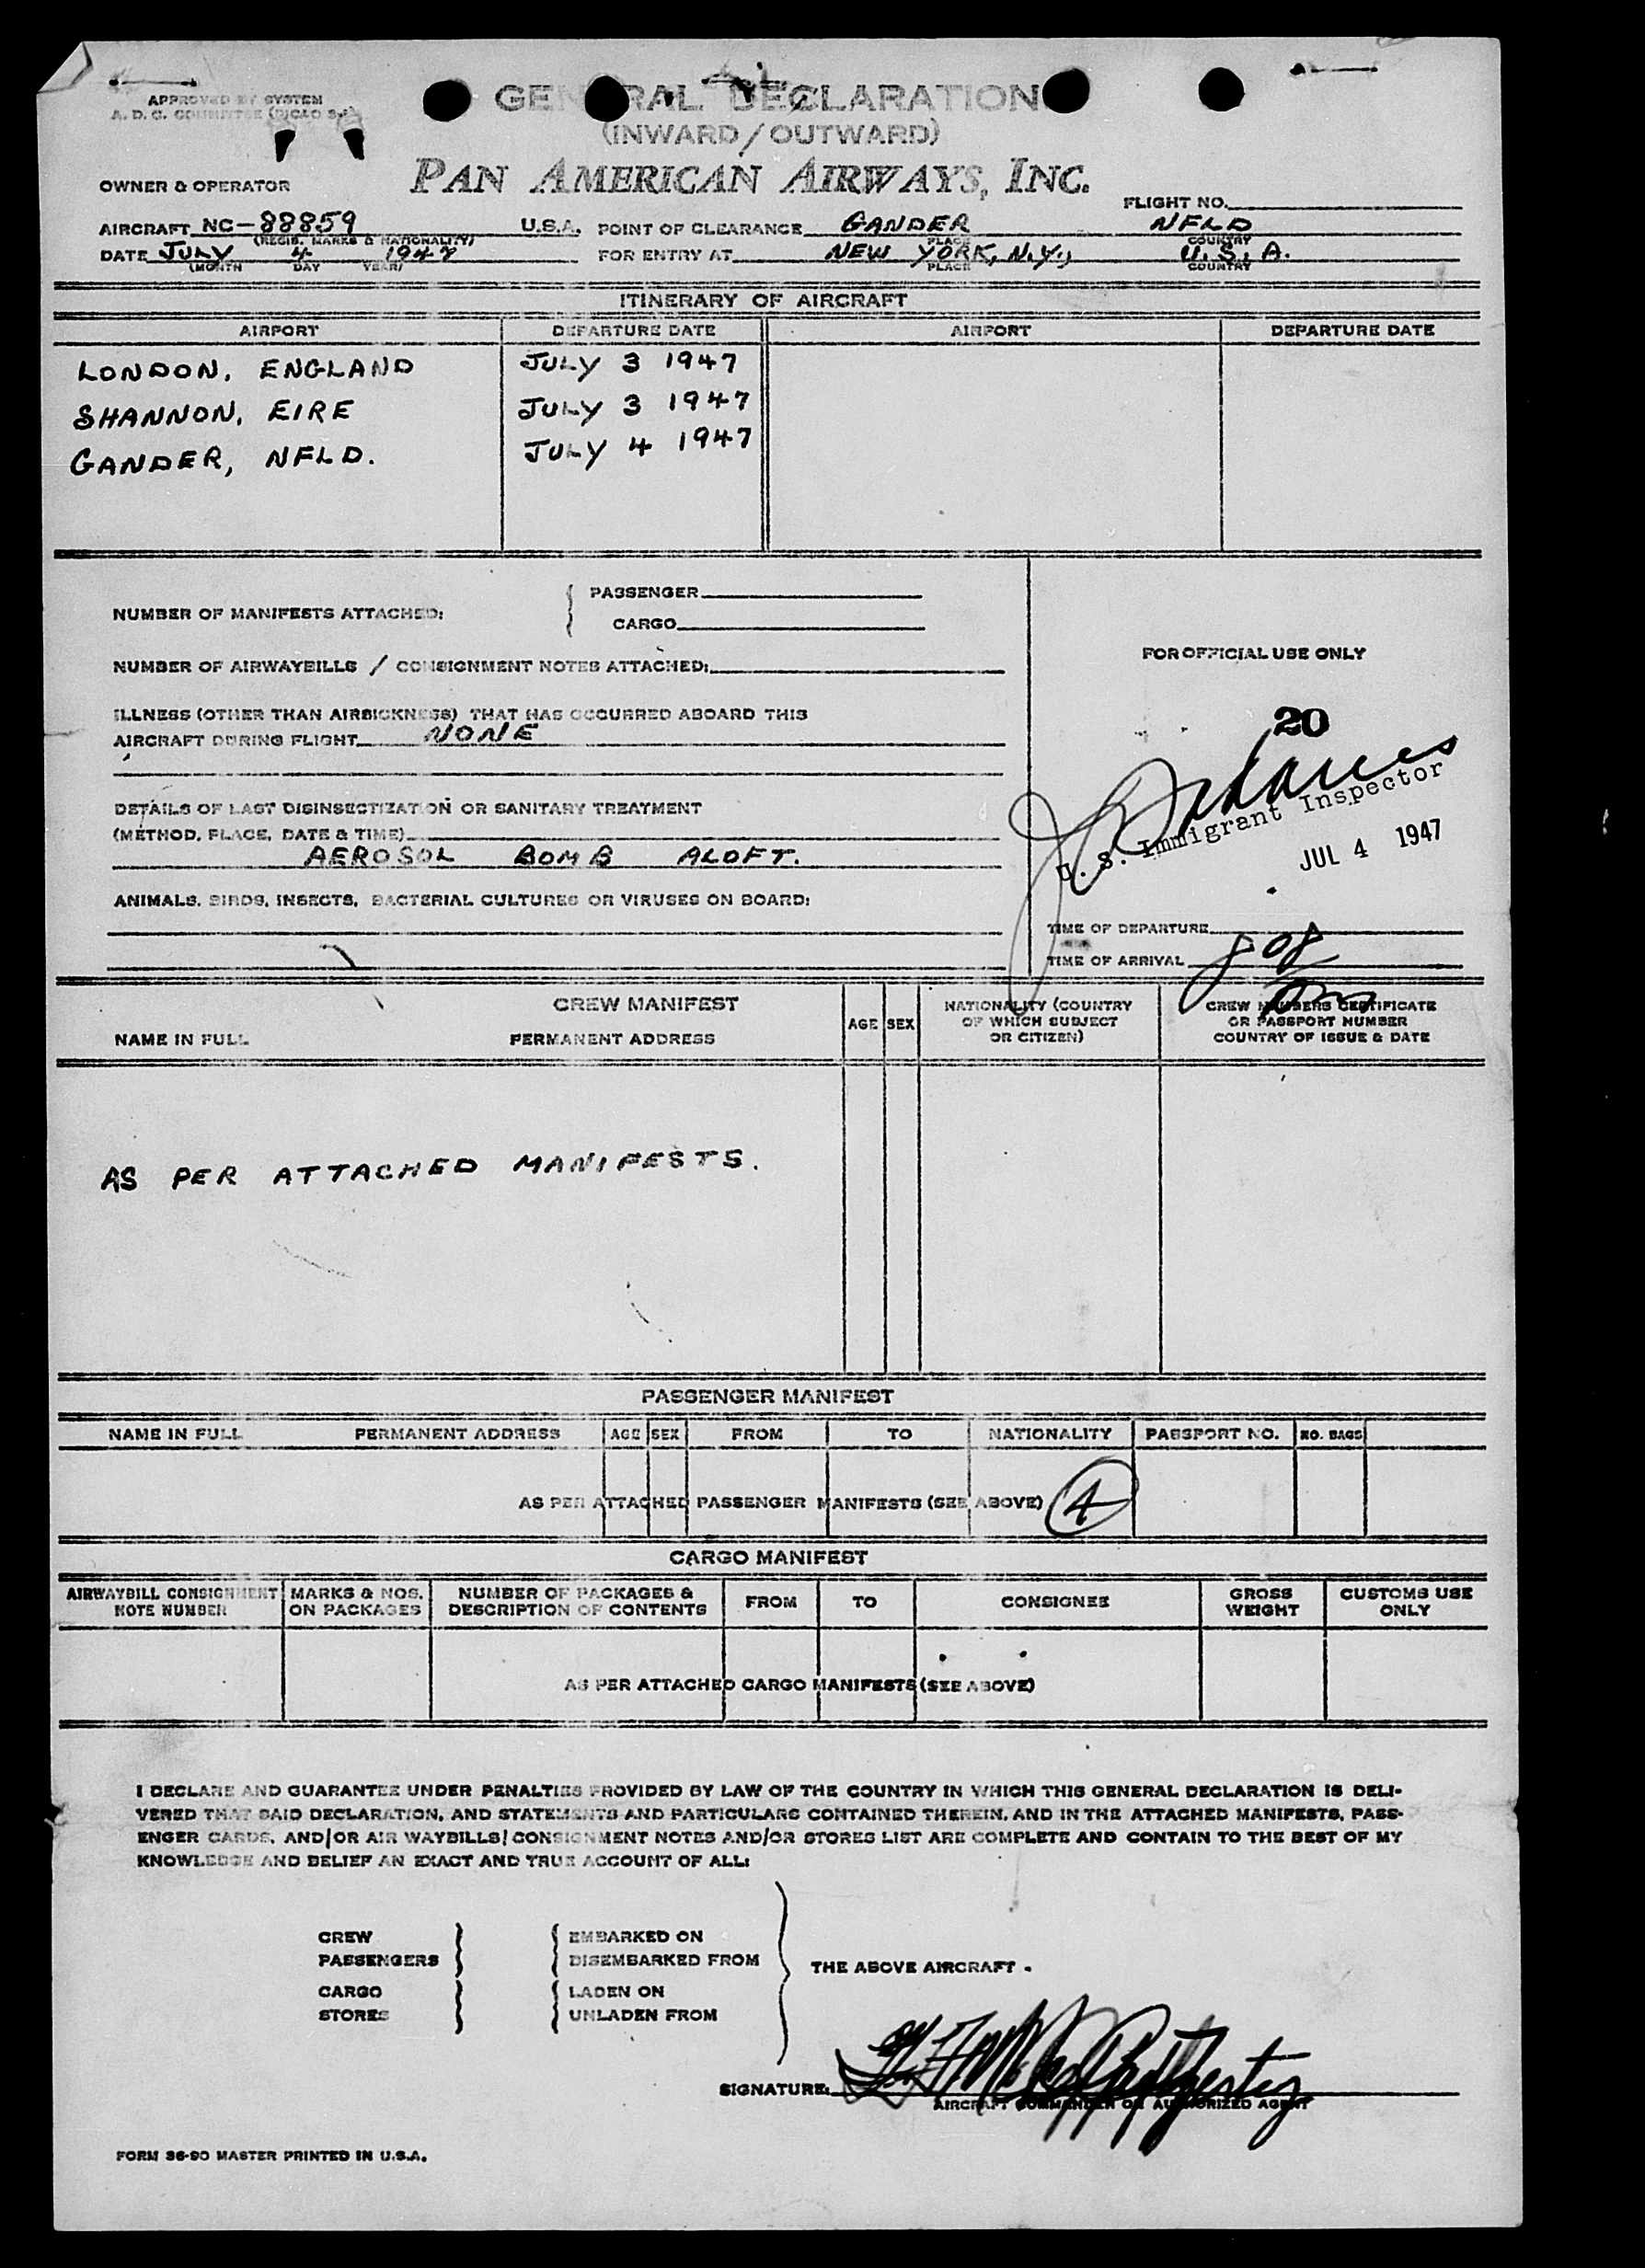 APPROVED BY SYSTEM
GENERAL DECLARATION
(INWARD / OUTWARD)
OWNER & OPERATOR
PAN AMERICAN AIRWAYS, INC.
FLIGHT NO.
AIRCRAFT NC-88859 U.S.A. POINT OF CLEARANCE GANDER NFLD
(REGIS. MARKS & NATIONALITY) PLACE COUNTRY
DATE JULY 4 1947 FOR ENTRY AT NEW YORK, N.Y., U.S.A.
(MONTH DAY YEAR) PLACE COUNTRY
ITINERARY OF AIRCRAFT
AIRPORT DEPARTURE DATE AIRPORT DEPARTURE DATE
LONDON, ENGLAND JULY 3 1947
SHANNON, EIRE JULY 3 1947
GANDER, NFLD. JULY 4 1947
NUMBER OF MANIFESTS ATTACHED:
PASSENGER
CARGO
NUMBER OF AIRWAYBILLS / CONSIGNMENT NOTES ATTACHED:
ILLNESS (OTHER THAN AIRSICKNESS) THAT HAS OCCURRED ABOARD THIS
AIRCRAFT DURING FLIGHT NONE
DETAILS OF LAST DISINSECTIZATION OR SANITARY TREATMENT
(METHOD, PLACE, DATE & TIME)
AEROSOL BOMB ALOFT.
ANIMALS, BIRDS, INSECTS, BACTERIAL CULTURES OR VIRUSES ON BOARD:
FOR OFFICIAL USE ONLY
20
U. S. Immigrant Inspector
JUL 4 1947
TIME OF DEPARTURE
TIME OF ARRIVAL 808
am
CREW MANIFEST
NAME IN FULL PERMANENT ADDRESS
AGE SEX
NATIONALITY (COUNTRY
OF WHICH SUBJECT
OR CITIZEN)
CREW MEMBERS CERTIFICATE
OR PASSPORT NUMBER
COUNTRY OF ISSUE & DATE
AS PER ATTACHED MANIFESTS.
PASSENGER MANIFEST
NAME IN FULL PERMANENT ADDRESS AGE SEX FROM TO NATIONALITY PASSPORT NO. NO. BAGS
AS PER ATTACHED PASSENGER MANIFESTS (SEE ABOVE) 4
CARGO MANIFEST
AIRWAYBILL CONSIGNMENT
NOTE NUMBER
MARKS & NOS.
ON PACKAGES
NUMBER OF PACKAGES &
DESCRIPTION OF CONTENTS
FROM TO CONSIGNEE
GROSS
WEIGHT
CUSTOMS USE
ONLY
AS PER ATTACHED CARGO MANIFESTS (SEE ABOVE)
I DECLARE AND GUARANTEE UNDER PENALTIES PROVIDED BY LAW OF THE COUNTRY IN WHICH THIS GENERAL DECLARATION IS DELI-
VERED THAT SAID DECLARATION, AND STATEMENTS AND PARTICULARS CONTAINED THEREIN, AND IN THE ATTACHED MANIFESTS, PASS-
ENGER CARDS, AND/OR AIR WAYBILLS/CONSIGNMENT NOTES AND/OR STORES LIST ARE COMPLETE AND CONTAIN TO THE BEST OF MY
KNOWLEDGE AND BELIEF AN EXACT AND TRUE ACCOUNT OF ALL:
CREW EMBARKED ON
PASSENGERS DISEMBARKED FROM
THE ABOVE AIRCRAFT.
CARGO LADEN ON
STORES UNLADEN FROM
SIGNATURE:
AIRCRAFT COMMANDER OR AUTHORIZED AGENT
FORM 36-90 MASTER PRINTED IN U.S.A.